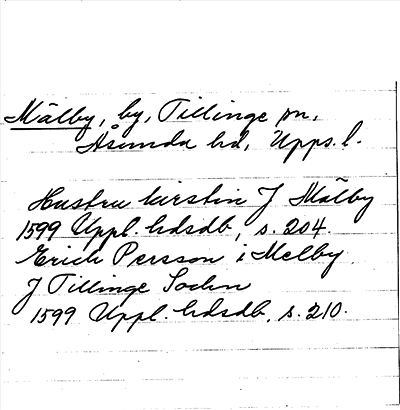 Mälby, by, Tillinge sn,
Åsunda hd, Upps. l.
Hustru kirstin J Mälby
1599 Uppl. hdsdb, s. 204.
Erich Persson i Melby
J Tillinge Sochn
1599 Uppl. hdsdb, s. 210.